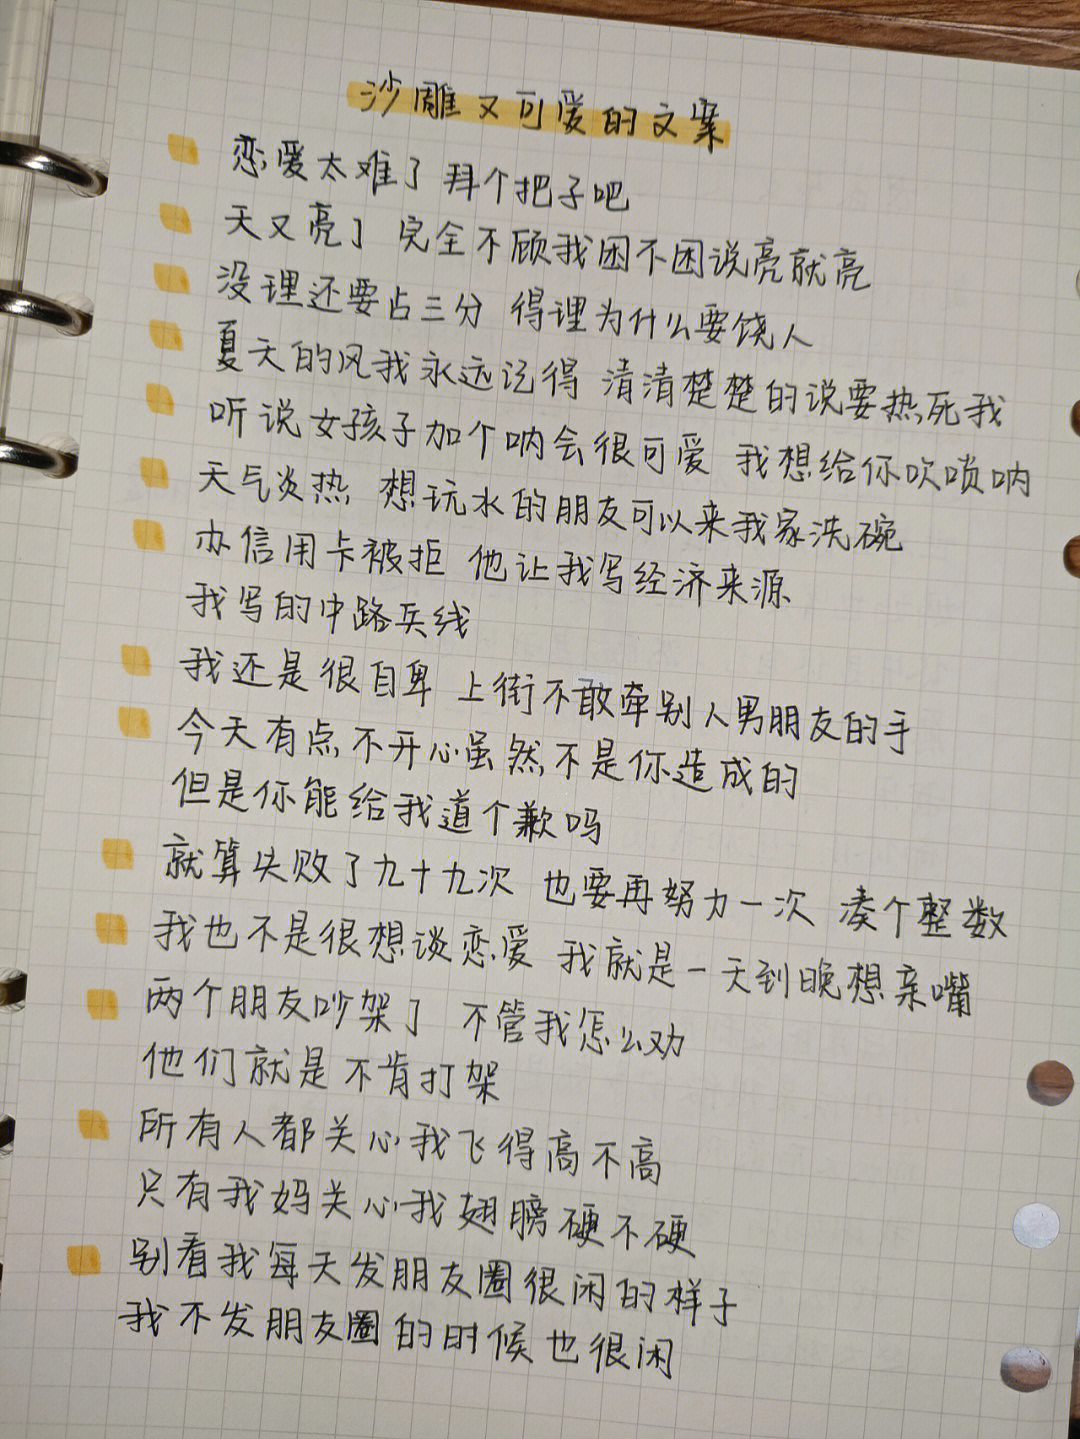 沙雕又可爱的文案
恋爱太难了 拜个把子吧
天又亮了 完全不顾我困不困说亮就亮
没理还要占三分 得理为什么要饶人
夏天的风我永远记得 清清楚楚的说要热死我
听说女孩子加个呐会很可爱 我想给你吹唢呐
天气炎热 想玩水的朋友可以来我家洗碗
办信用卡被拒 他让我写经济来源
我写的中路兵线
我还是很自卑 上街不敢牵别人男朋友的手
今天有点不开心虽然不是你造成的
但是你能给我道个歉吗
就算失败了九十九次 也要再努力一次 凑个整数
我也不是很想谈恋爱 我就是一天到晚想亲嘴
两个朋友吵架了 不管我怎么劝
他们就是不肯打架
所有人都关心我飞得高不高
只有我妈关心我翅膀硬不硬
别看我每天发朋友圈很闲的样子
我不发朋友圈的时候也很闲